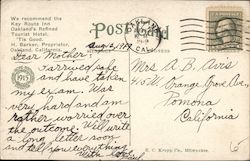 We recommend the
Key Route Inn
Oakland's Refined
Tourist Hotel.
'Tis Good.
H. Barker, Proprietor,
Oakland, California.
Post Card
CAL.
1915
Dear Mother:
I arrived safe
and have taken
my exam. Was
very hard and am
rather worried over
the outcome. Will write
a long letter soon
and tell you everything
With Love
Mrs A. B. Avis
415 W. Orange Grove Ave.
Pomona
California
E. C. Kropp Co., Milwaukee.